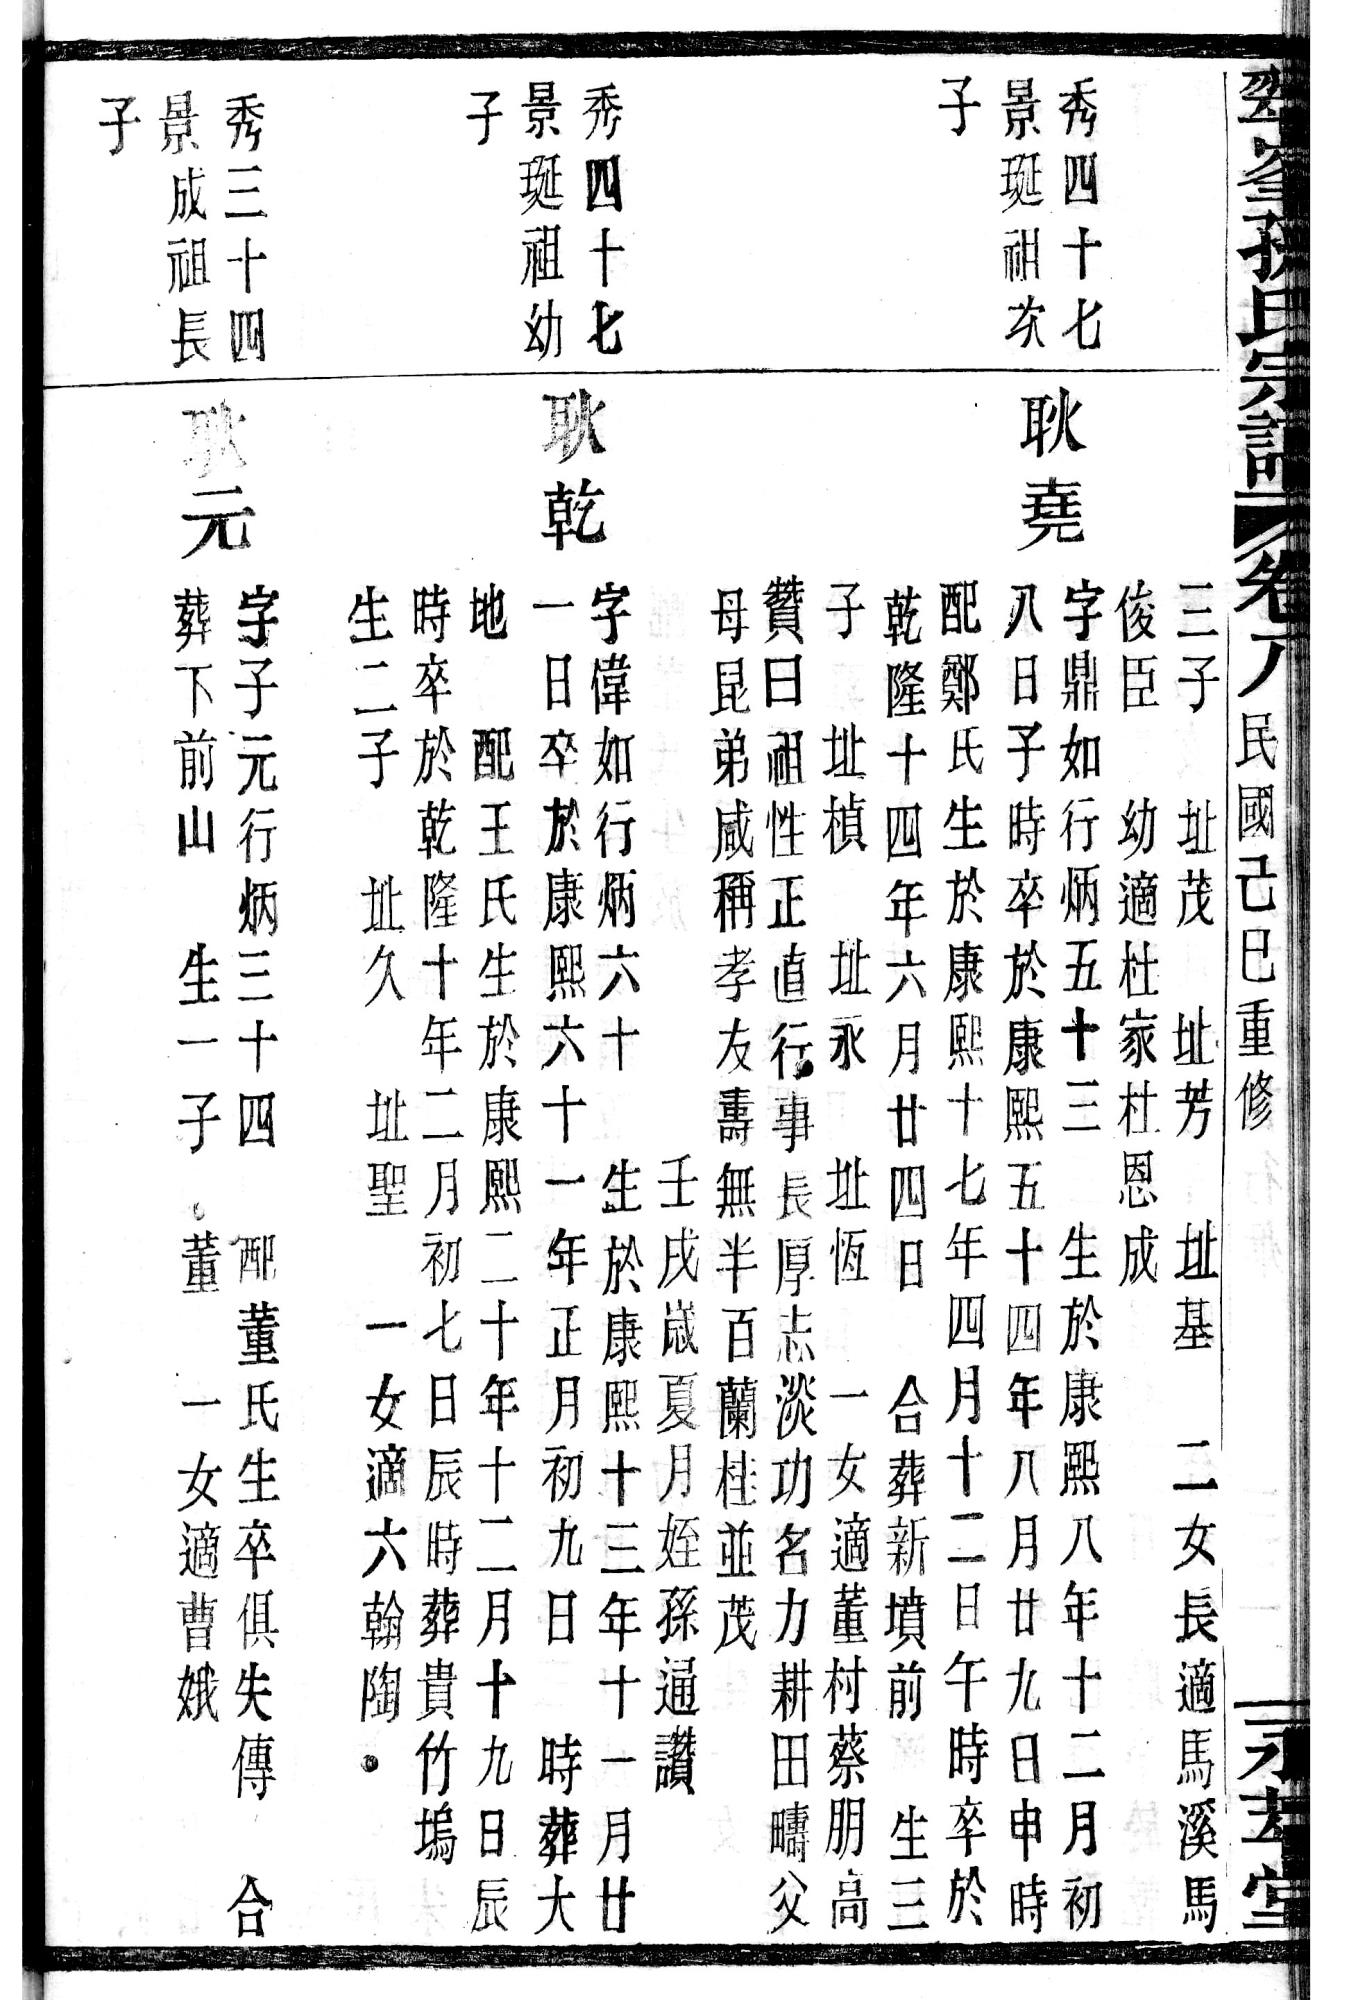 翠峯孫氏宗譜 卷八 民國己巳重修 永萃堂
三子 址茂 址芳 址基 二女長適馬溪馬
俊臣 幼適杜家杜恩成
秀四十七
景珽祖次
子
耿堯
字鼎如行炳五十三 生於康熙八年十二月初
八日子時卒於康熙五十四年八月廿九日申時
配鄭氏生於康熙十七年四月十二日午時卒於
乾隆十四年六月廿四日 合葬新墳前 生三
子 址楨 址永 址恆 一女適董村蔡朋高
贊曰祖性正直行事長厚志淡功名力耕田疇父
母昆弟咸稱孝友壽無半百蘭桂並茂
壬戌歲夏月姪孫通讚
秀四十七
景珽祖幼
子
耿乾
字偉如行炳六十 生於康熙十三年十一月廿
一日卒於康熙六十一年正月初九日 時葬大
地 配王氏生於康熙二十年十二月十九日辰
時卒於乾隆十年二月初七日辰時葬貴竹塢
生二子 址久 址聖 一女適六翰陶
秀三十四
景成祖長
子
耿元
字子元行炳三十四 配董氏生卒俱失傳 合
葬下前山 生一子 董 一女適曹娥